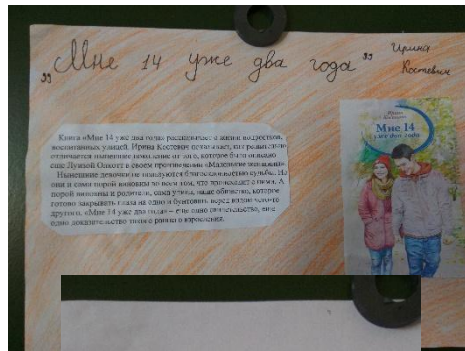 „Мне 14 уже два года”
Ирина
Костевич
Мне 14
уже два года
Книга «Мне 14 уже два года» рассказывает о жизни подростков,
воспитанных улицей. Ирина Костевич
отличается нынешнее поколение от того, которое было описано
еще Луизой Олкотт в своем произведении «Маленькие женщины».
Нынешние девочки не пользуются благосклонностью судьбы. Но
они и сами порой виновны во всем том, что происходит с ними. А
порой виновны и родители, сама улица, наше общество, которое
готово закрывать глаза на одно и бунтовать перед
другого. «Мне 14 уже два года» – еще одно свидетельство, еще
одно доказательство такого раннего взросления.